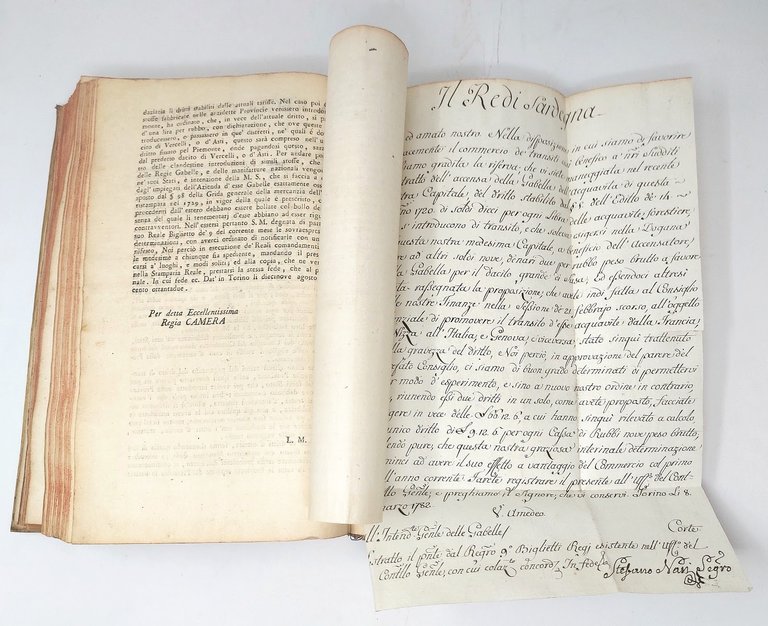 dazíario li dritti stabiliti dalle attuali tariffe. Nel caso poi
stoffe fabbricate nelle accennate Provincie venissero introdo
monte, ha ordinato, che, in vece dell'attuale dritto, si p
d'una lira per rubbo, con dichiarazione, che ove queste
troducessero, o passassero in que' distretti, ne' quali è do
cito di Vercelli, o d'Asti, questo sarà compreso nell'u
dritto fissato pel Piemonte, onde pagandosi questo, sarà
dal predetto dacito di Vercelli, o d'Asti. Per andare po
delle clandestine introduzioni di simili stoffe, che
delle Regie Gabelle, e delle manifatture nazionali vengon
ne' suoi Stati, è intenzione della M. S., che si faccia a
dagl' impiegati dell'Azienda d'esse Gabelle esattamente oss
sposto dal § 98 della Guida generale della mercanzia dell'
ristampata nel 1729, in vigor della quale è prescritto,
procedenti dall'estero debbano essere bollate col bollo de
senza del quale li ritenentarj d'esse abbiano ad essere rig
contravventori. Nell'essersi pertanto S. M. degnata di par
suo Reale Biglietto de' 9 del corrente mese le sovraespr
determinazioni, con averci ordinato di notificarle con un
Noi perciò in esecuzione de' Reali comandamenti
le medesime a chiunque fia spediente, mandando il pres
carsi a' luoghi, e modi soliti, ed alla copia, che ne ver
nella Stamparia Reale, prestarsi la stessa fede, che al p
nale. la cui fede ec. Dat' in Torino li diecinove agosto
cento ottantadue.
Per detta Eccellentissima
Regia CAMERA
L. M.
Il Re di Sardegna
ed amato nostro. Nella disposizione in cui siamo di favorire
acemente il commercio de' transiti in beneficio a' Sudditi
siamo gradita la riserva, che vi siete maneggiata nel recente
ntratto dell' accensa della Gabella dell'acquavita di questa
tra Capitale, del dritto stabilito dal §. 8. dell'Editto de' 14
no 1720. di soldi dieci per ogni libra delle acquavite forestiere,
s' introducono di transito, e da esigersi nella Dogana
questa nostra medesima Capitale a beneficio dell' Accensatore,
re ad altri soldi nove, denari due per rubbo peso brutto a favore
la Gabella per il dacito grande di Susa. Ed essendoci altresì
ta rassegnata la proposizione, che avete indi fatta al Consiglio
le nostre Finanze nella sessione de' 21. febbrajo scorso, all'oggetto
nziale di promovere il transito d'esse acquavite dalla Francia,
Nizza all' Italia, e Genova, e viceversa, stato sinquì trattenuto
lla gravezza del dritto, e Noi perciò, in approvazione del parere del
efato Consiglio, ci siamo di buon grado determinati di permettervi
r modo d' esperimento, e sino a nuovo nostro ordine in contrario
, riunendo essi due dritti in un solo, come avete proposto, facciate
gere in vece delle a cui hanno sinquì rilevato a calcolo
unico dritto di per ogni Cassa di Rubbi nove peso brutto,
ndo pure, che questa nostra graziosa interinale determinazione
minci ad avere il suo effetto a vantaggio del Commercio col primo
ll'anno corrente. Farete registrare il presente all' Uff.o del Cont-
Gen.le; e preghiamo il Signore, che vi conservi. Torino li 8.
marzo 1782.
V. Amedeo
Corte
ll' Intend.te Gen.le delle Gabelle
stratto il pnte dal Reg.ro 9.o Biglietti Regj esistente nell' Uff.o del
Contllo Gen.le, con cui colaz.to concorda. In fede Stefano Segro